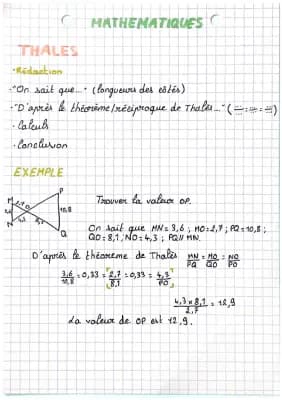 MATHEMATIQUES
THALES
• Rédaction
- "On sait que..." (longueurs des côtés)
- "D'après le théorème/réciproque de Thalès..." (— = — = —)
- Calculs
- Conclusion
EXEMPLE
M P
2,7 O
3,6 10,8
N 4,3 8,1
Q
Trouver la valeur OP.
On sait que MN = 3,6 ; MO = 2,7 ; PQ = 10,8 ;
QO = 8,1 ; NO = 4,3 ; PQ // MN.
D'après le théorème de Thalès MN/PQ = MO/QO = NO/PO
3,6/10,8 = 0,33 = 2,7/8,1 = 0,33 = 4,3/PO
4,3 x 8,1/2,7 = 12,9
La valeur de OP est 12,9.